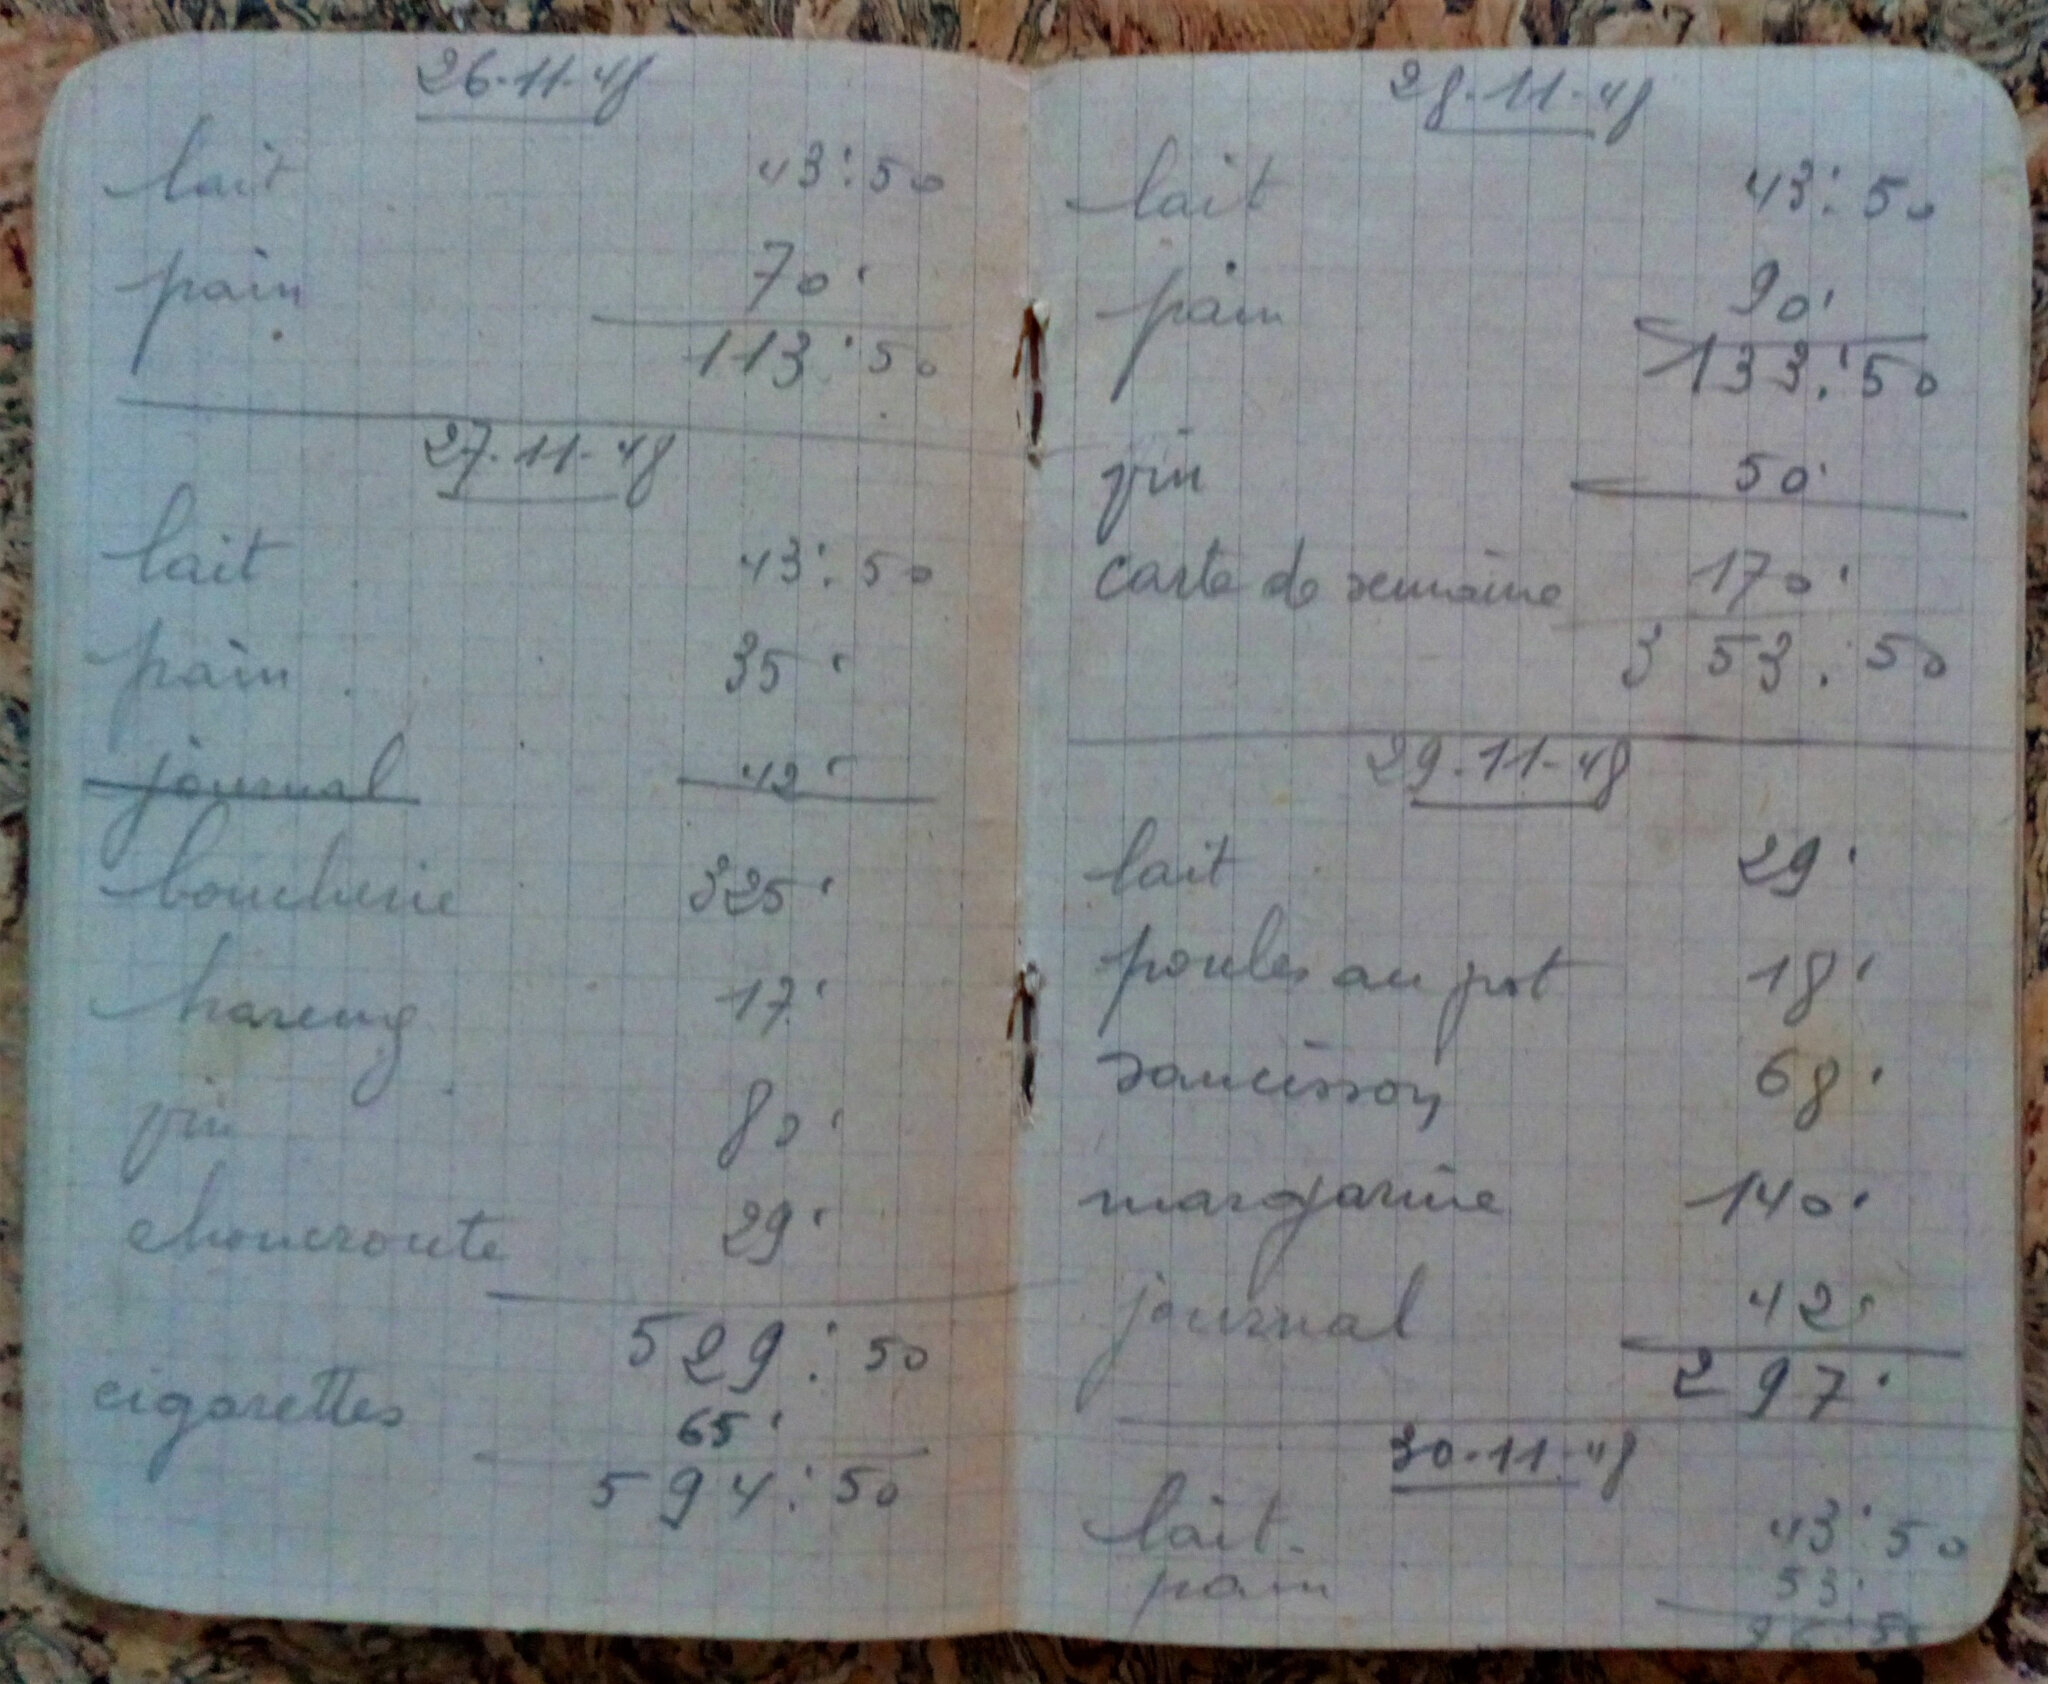 26-11-48
lait 43:50
pain 70'
113:50
27-11-48
lait 43:50
pain 35'
journal 42'
boucherie 325'
hareng 17'
vin 80'
choucroute 29'
529:50
cigarettes 65'
594:50
28-11-48
lait 43:50
pain 90'
133:50
vin 50'
carte de semaine 170'
353:50
29-11-48
lait 29'
poules au pot 18'
saucisson 68'
margarine 140'
journal 42'
297'
30-11-48
lait 43:50
pain 53'
96:50